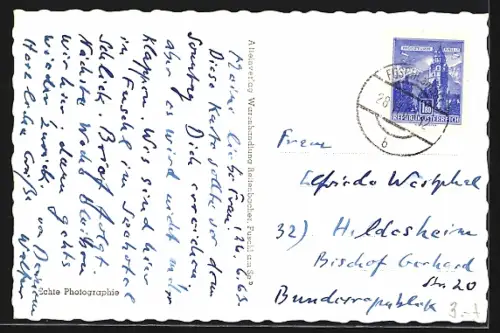 Meine liebe Frau, 26.6.63
Diese Karte sollte vor dem
Sonntag Dich erreichen
aber es wird nicht mehr
klappen. Wir sind hier
in Fuschl im Seehotel
Schlick. Brief folgt.
Nächste Woche bleiben
wir hier, dann gehts
wieder zurück.
Herzliche Grüße
Alleinverlag Warenhandlung Fuschl
Echte Photographie
REPUBLIK ÖSTERREICH
b
Frau
Elfriede Westphal
32) Hildesheim
Bischof Gerhard
Str. 20
Bundesrepublik
3.-